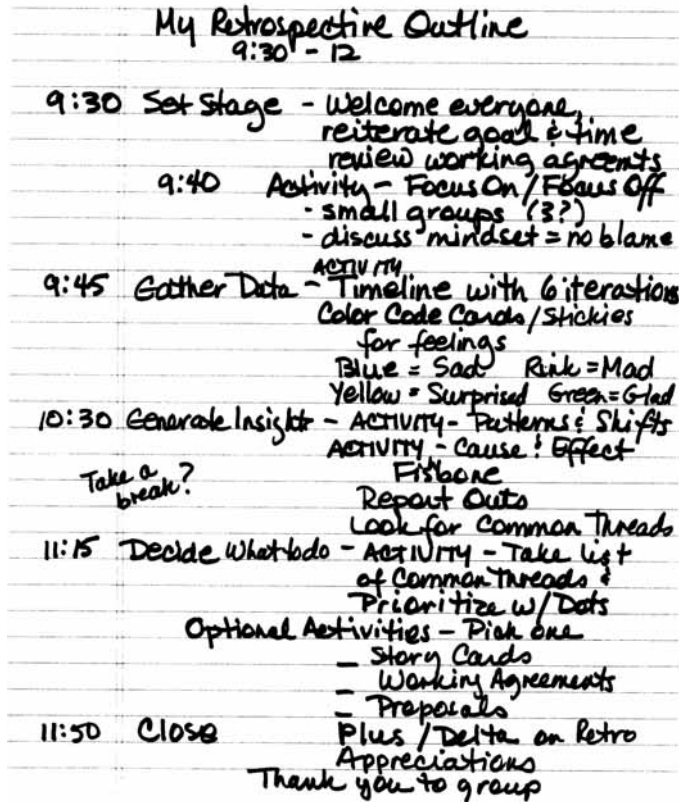 My Retrospective Outline
9:30 - 12
9:30 Set Stage - Welcome everyone,
reiterate goal & time
review working agreemts
9:40 Activity - Focus On / Focus Off
- small groups (3?)
- discuss mindset = no blame
ACTIVITY
9:45 Gather Data - Timeline with 6 iterations
Color Code Cards / Stickies
for feelings
Blue = Sad Pink = Mad
Yellow = Surprised Green = Glad
10:30 Generate Insight - ACTIVITY - Patterns & Shifts
ACTIVITY - Cause & Effect
Fisbone
Take a
break?
Report Outs
Look for Common Threads
11:15 Decide What to do - ACTIVITY - Take list
of Common Threads &
Prioritize w/ Dots
Optional Activities - Pick one
- Story Cards
- Working Agreements
- Proposals
11:50 Close Plus / Delta on Retro
Appreciations
Thank you to group